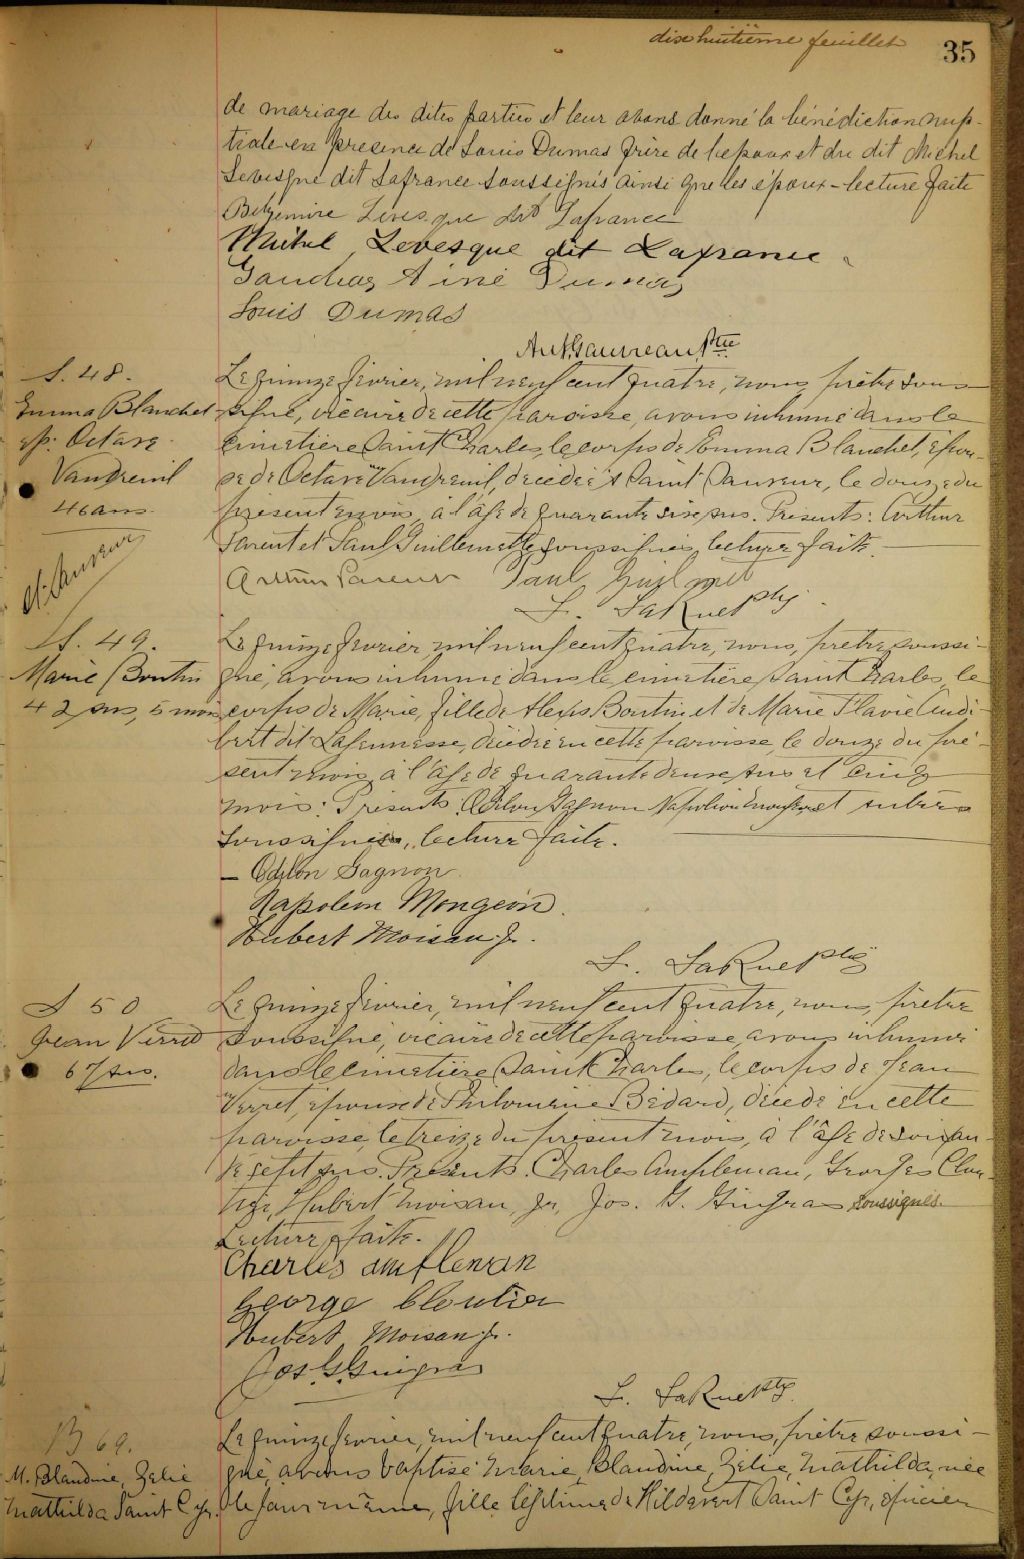 dix huitième feuillet
35
de mariage des dites parties et leur avons donné la bénédiction nup-
tiale en presence de Louis Dumas frère de l'epoux et du dit Michel
Levesque dit Lafrance soussignés ainsi que les époux - lecture faite
Levesque dit Lafrance
Michel Levesque dit Lafrance
Gaudias Aimé Dumas
Louis Dumas
Ant. Gauvreau Ptre
S. 48.
Emma Blanchet
ép. Octave
Vaudreuil
46 ans.
St. Sauveur
Le quinze février, mil neuf cent quatre, nous, prêtre sous-
signé, vicaire de cette paroisse, avons inhumé dans le
cimetière Saint Charles, le corps de Emma Blanchet, épou-
se de Octave Vaudreuil, décédée à Saint Sauveur, le douze du
présent mois, à l'âge de quarante six ans. Présents: Arthur
Parent et Paul Guillemette, soussignés, lecture faite.
Arthur Parent Paul Guilmet
L. LaRue Ptre
S. 49.
Marie Boutin
42 ans, 5 mois
Le quinze février mil neuf cent quatre, nous, prêtre soussi-
gné, avons inhumé dans le cimetière Saint Charles, le
corps de Marie, fille de Alexis Boutin et de Marie Flavie Audi-
bert dit Lajeunesse, décédée en cette paroisse, le douze du pré-
sent mois, à l'âge de quarante deux ans et cinq
mois: Présents: Odilon Gagnon Napoléon Mongeon et autres
soussignés, lecture faite.
Odilon Gagnon
Napoleon Mongeon.
Hubert Moisan Jr.
L. LaRue Ptre
S 50
Jean Verret
67 ans.
Le quinze février, mil neuf cent quatre, nous, prêtre
soussigné, vicaire de cette paroisse, avons inhumé
dans le cimetière Saint Charles, le corps de Jean
Verret, époux de Philomène Bédard, décédé en cette
paroisse, le treize du présent mois, à l'âge de soixan-
te sept ans. Présents: Charles Ampleman, Georges Clou-
tier, Hubert Moisan, Jr, Jos. G. Gingras soussignés.
Lecture faite.
Charles ampleman
George Cloutier
Hubert Moisan Jr.
Jos. G. Gingras
L. LaRue Ptre
B 69.
M. Blandine, Zélie
Mathilda Saint Cyr.
Le quinze février, mil neuf cent quatre, nous, prêtre soussi-
gné, avons baptisé Marie, Blandine, Zélie, Mathilda, née
le jour même, fille légitime de Hildevert Saint Cyr, épicier